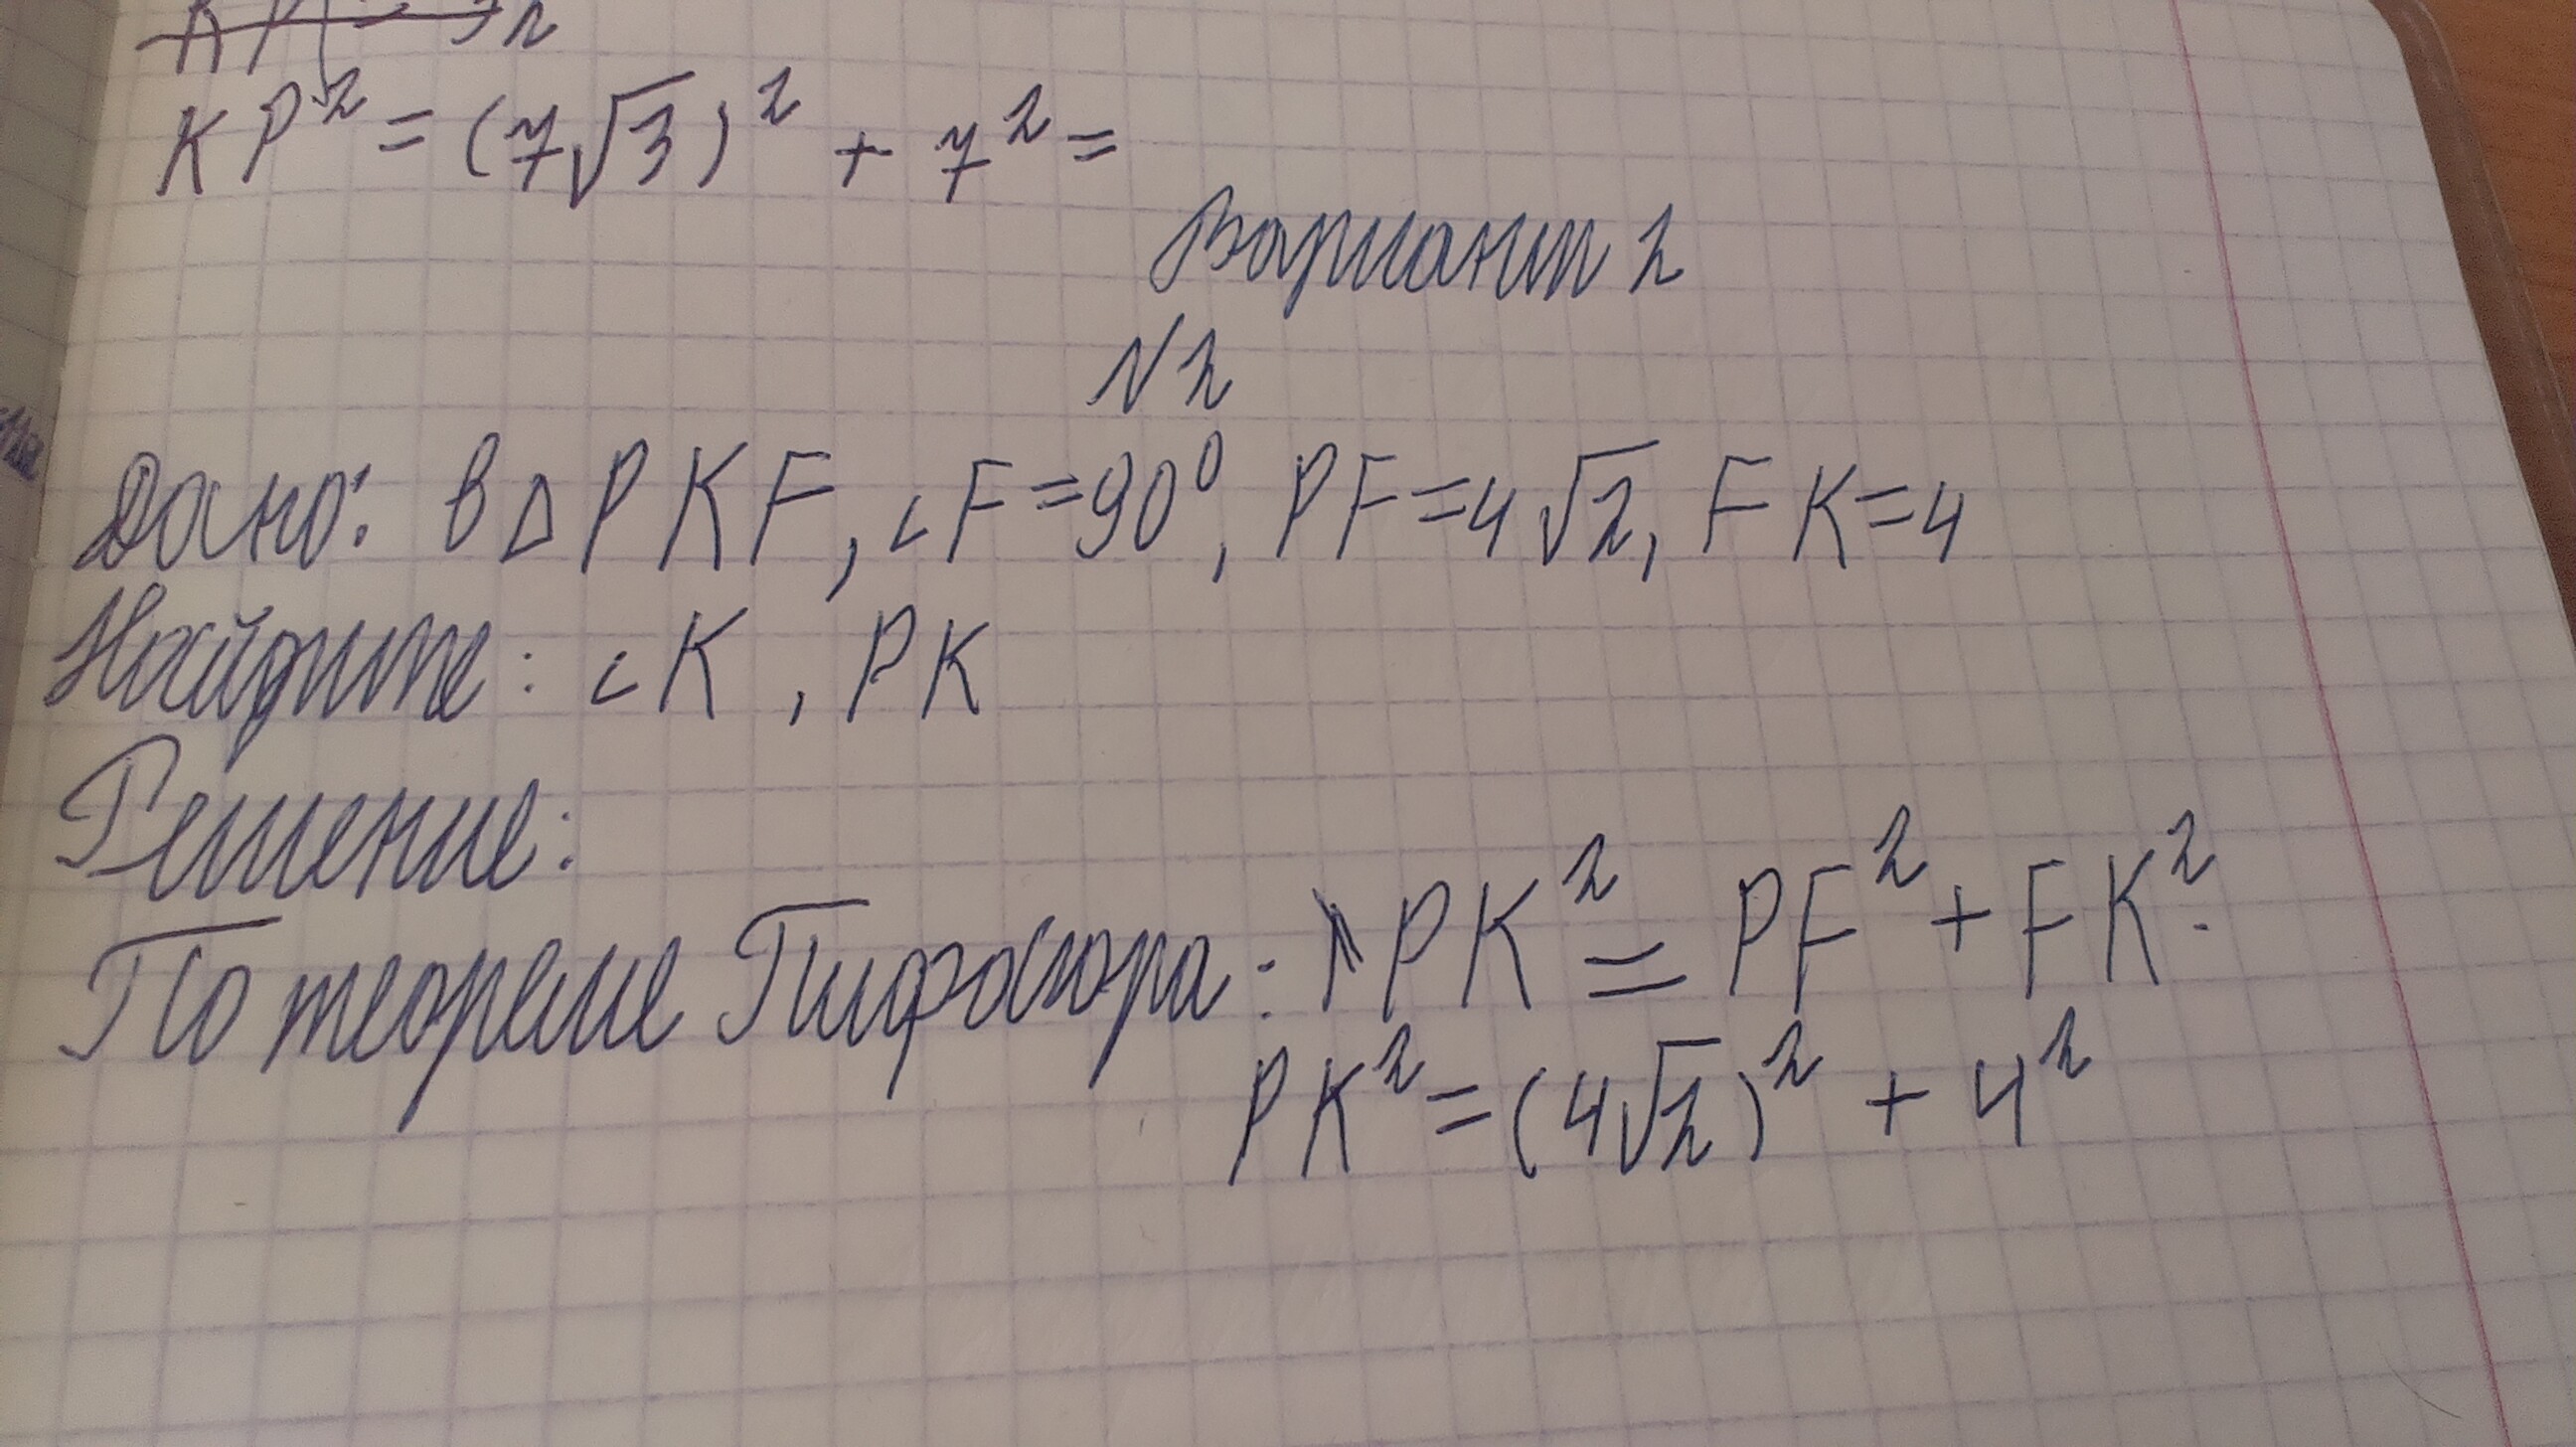 KP² = (7√3)² + 7² =
Вариант 2
N2
Дано: в △PKF, ∠F=90⁰, PF=4√2, FK=4
Найдите: ∠K, PK
Решение:
По теореме Пифагора: PK² = PF² + FK².
PK² = (4√2)² + 4²